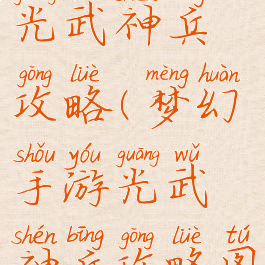 光武神兵
gōng lüè mèng huàn
攻略(梦幻
shǒu yóu guāng wǔ
手游光武
shén bīng gōng lüè tú
神兵攻略图